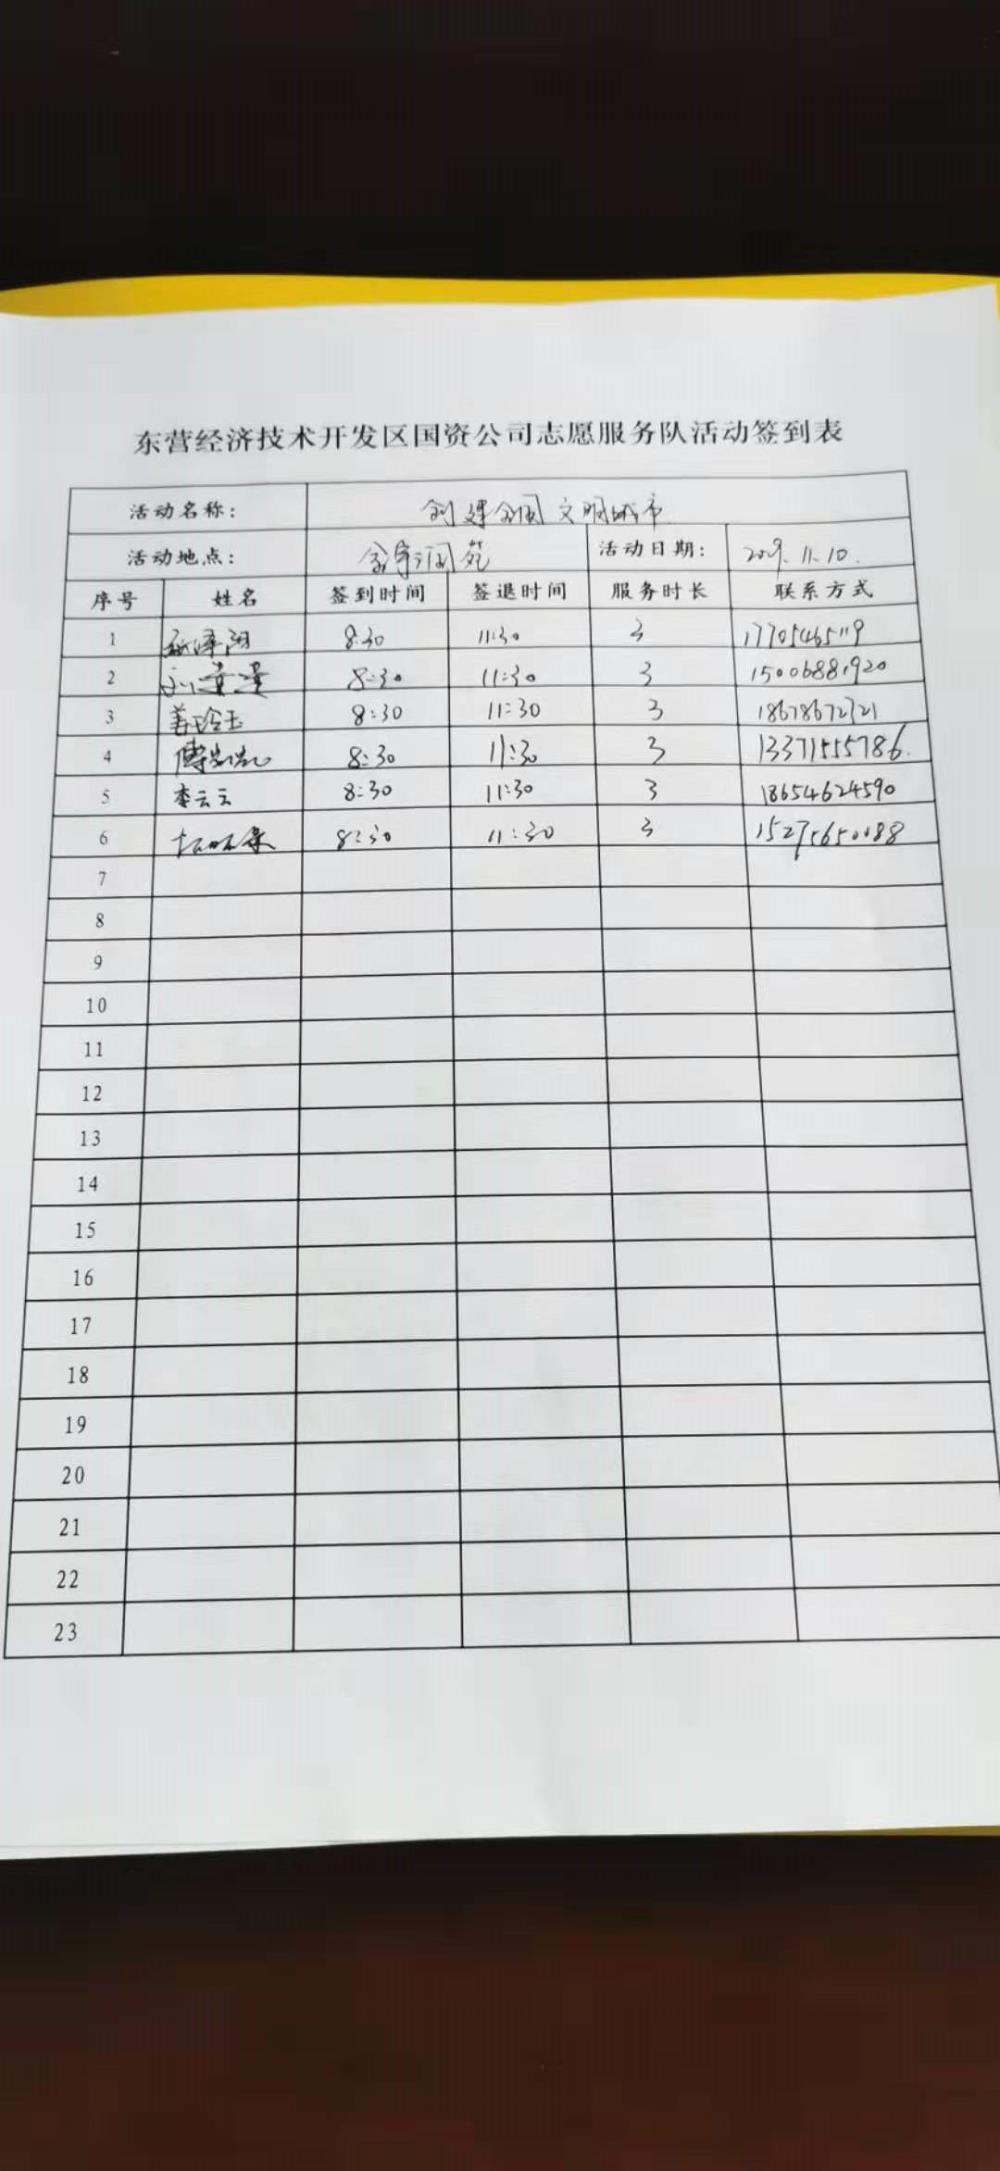 东营经济技术开发区国资公司志愿服务队活动签到表
活动名称: 创建全国文明城市
活动地点: 金宇润苑 活动日期: 2019.11.10.
序号 姓名 签到时间 签退时间 服务时长 联系方式
1 8:30 11:30 3 17705465119
2 8:30 11:30 3 15006881920
3 姜玲玉 8:30 11:30 3 18678672721
4 傅岩岩 8:30 11:30 3 13371555786.
5 李云云 8:30 11:30 3 18654624590
6 8:30 11:30 3 15275650088
7
8
9
10
11
12
13
14
15
16
17
18
19
20
21
22
23